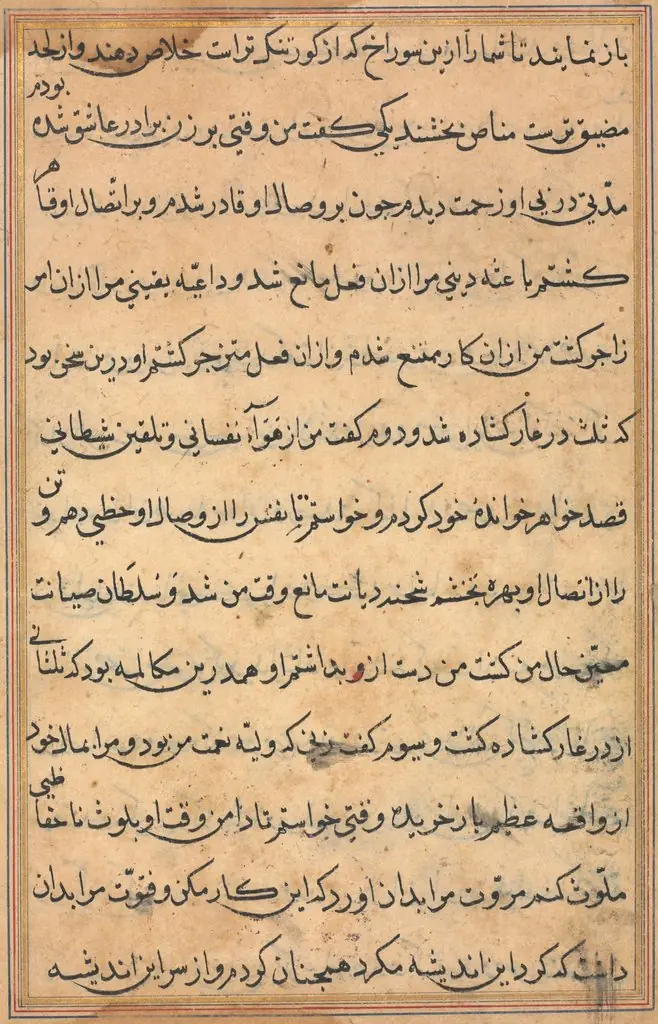 باز نمایند تا شما را ازین سوراخ که از کور تنک تراست خلاص دهند و از لحد
مضیق ترست مناص بخشند یکی کفت من وقتی بر زن برادر عاشق شده بودم
مدّتی در پی او زحمت دیدم چون بر وصال او قادر شدم و بر اتّصال او قاهر
کشتم باعثه دینی مرا ازان فعل مانع شد و داعیّه یقینی مرا ازان امر
زاجر کشت من ازان کار ممتنع شدم وازان فعل منزجر کشتم او درین سخن بود
که ثلث در غار کشاده شد و دوم کفت من از هَوَآء نفسانی و تلقین شیطانی
قصد خواهر خواندهٔ خود کردم و خواستم تا نفس را از وصال او حظی دهم و تن
را از اتصال او بهره بخشم شحنه دیانت مانع وقت من شد و سُلطان صیانت
حال من کشت من دست ازو بداشتم او همدرین مکالمه بود که ثلثانی
از در غار کشاده کشت و سیوم کفت زنی که ولیّه نعمت من بود و مرا بمال خود
از واقعه عظیم باز خریده وقتی خواستم تا دامن وقت او بلوث ناحفاظی
ملّوث کنم مروّت مرا بدان اورد که این کار مکن و فتوّت مرا بدان
داشت که کرد این اندیشه مکرد همچنان کردم و از سر این اندیشه